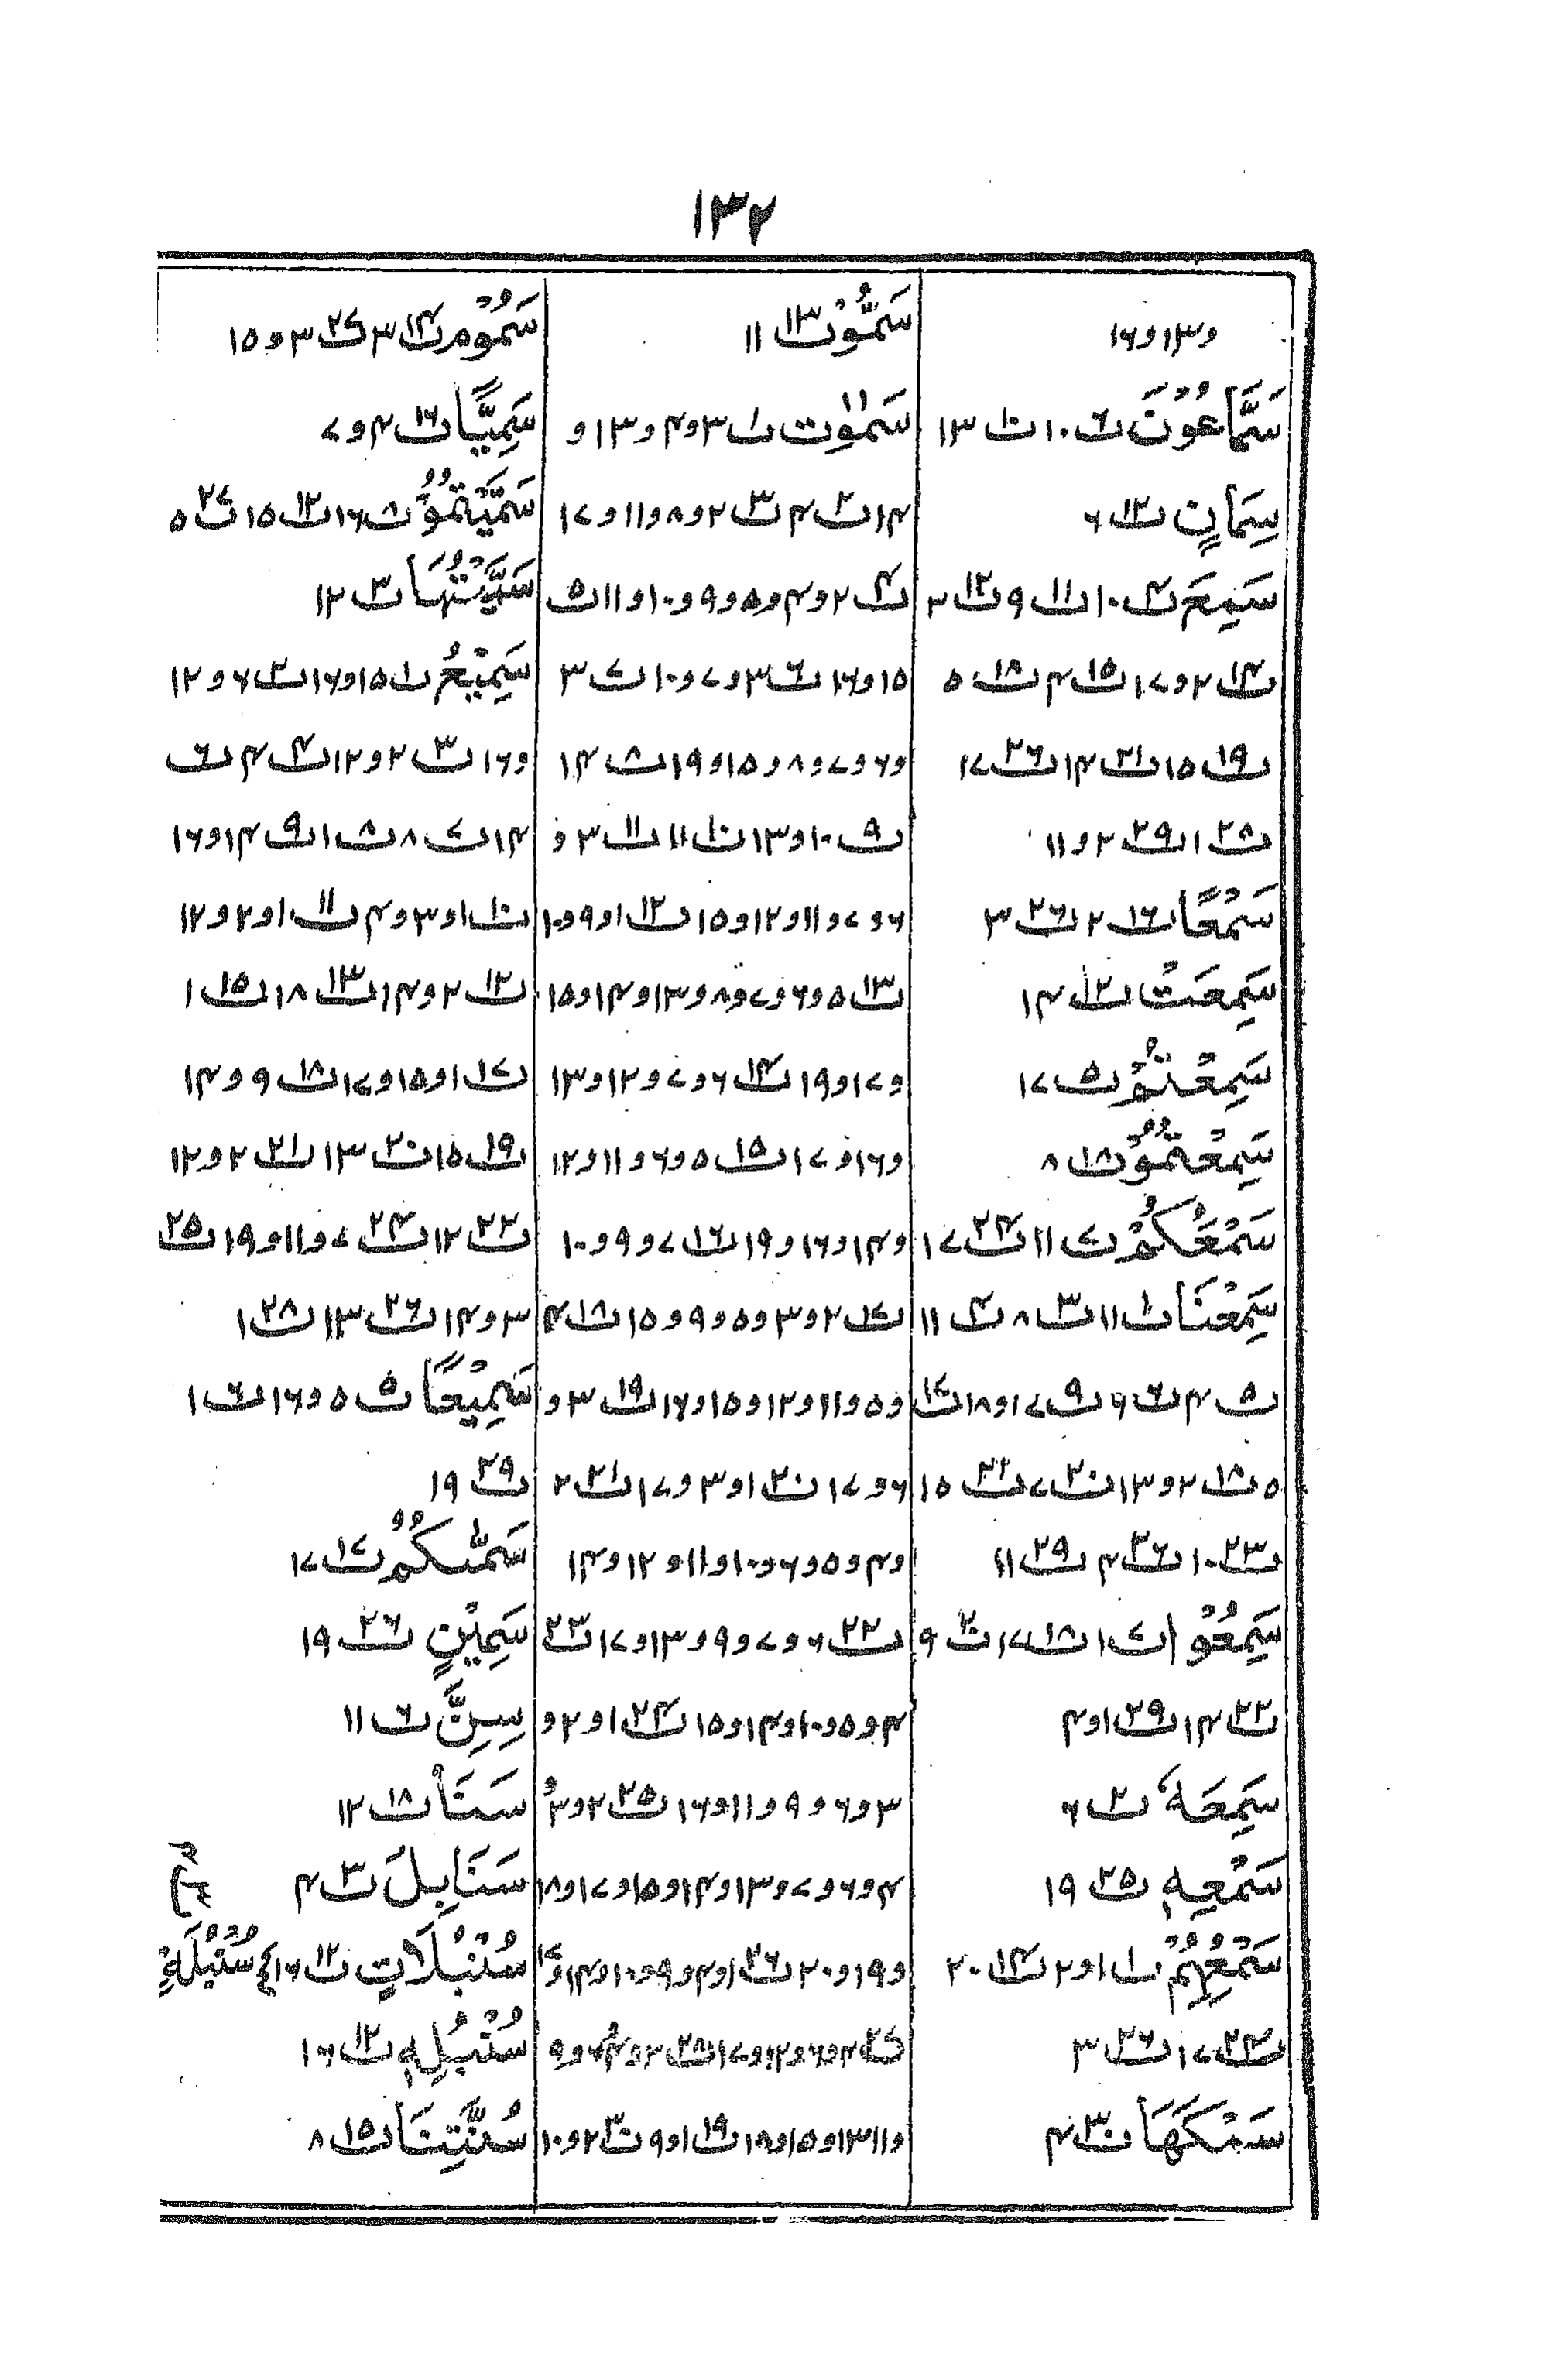 ۱۳۲
و۱۳و۱۶
سَمّٰعُوْنَ ت۶ ۱۰ ت۱۰ ۱۳
سِمَانٍ ت۱۲ ۶
سَمِعَ ت۴ ۱۰ ت۱۱ ۹ ت۱۲ ۳
ت۱۴ ۲و۱۷ ت۱۵ ۴ ت۱۸ ۵
ت۱۹ ۱۵ ت۲۱ ۱۴ ت۲۶ ۱۷
ت۲۸ ۱ ت۲۹ ۲و۱۱
سَمْعًا ت۱۶ ۲ ت۲۶ ۳
سَمِعَتْ ت۱۲ ۱۴
سَمِعْتُمْ ت۵ ۱۷
سَمِعْتُمُوْ ت۱۸ ۸
سَمْعَكُمْ ت۷ ۱۱ ت۲۴ ۱۷
سَمِعْنَا ت۱ ۱۱ ت۳ ۸ ت۴ ۱۱
ت۵ ۴ ت۶ ۶ ت۹ ۱۷و۱۸ ت۱۷
۵ ت۱۸ ۲و۱۳ ت۲۰ ۷ ت۲۱ ۱۵
ت۲۳ ۱۰ ت۲۶ ۴ ت۲۹ ۱۱
سَمِعُوْا ت۷ ۱ ت۱۸ ۱۷ ت۲۰ ۹
ت۲۲ ۱۴ ت۲۹ ۱و۴
سَمِعَهٗ ت۲ ۶
سَمْعِهٖ ت۲۵ ۱۹
سَمْعِهِمْ ت۱ ۱و۲ ت۱۴ ۲۰
ت۲۴ ۱۷ ت۲۶ ۳
سَمْكَهَا ت۳۰ ۴
سَمُّوْ ت۱۳ ۱۱
سَمٰوٰت ت۱ ۳و۴و۱۳و
۱۴ ت۲ ۴ ت۳ ۲و۸و۱۱و۱۷
ت۴ ۲و۴و۵و۹و۱۰و۱۱ ت۵
۱۵و۱۶ ت۶ ۳و۷و۱۰ ت۷ ۳
و۶و۷و۸و۱۵و۱۹ ت۸ ۱۴
ت۹ ۱۰و۱۳ ت۱۰ ۱۱ ت۱۱ ۳و
۶و۷و۱۱و۱۲و۱۵ ت۱۲ ۱و۹و۱۰
ت۱۳ ۵و۶و۷و۸و۱۳و۱۴و۱۵
و۱۷و۱۹ ت۱۴ ۶و۷و۱۲و۱۳
و۱۶و۱۷ ت۱۵ ۵و۶و۱۱و۱۲
و۱۴و۱۶و۱۹ ت۱۶ ۷و۹و۱۰
ت۱۷ ۲و۳و۵و۹و۱۵ ت۱۸ ۴
و۵و۱۱و۱۲و۱۵و۱۶ ت۱۹ ۳و
۶و۱۷ ت۲۰ ۱و۳و۱۷ ت۲۱ ۲
و۴و۵و۶و۱۰و۱۱و۱۲و۱۴
ت۲۲ ۶و۷و۹و۱۳و۱۷ ت۲۳
۴و۵و۱۰و۱۴و۱۵ ت۲۴ ۱و۲و
۳و۶و۹و۱۱و۱۶ ت۲۵ ۲و۳و
۴و۶و۷و۱۳و۱۴و۱۵و۱۷و۱۸
و۱۹و۲۰ ت۲۶ ۱و۴و۹و۱۰و۱۴و۱۷
ت۲۷ ۴و۶و۱۲و۱۷ ت۲۸ ۲و۴و۶و۹
و۱۱و۱۳و۱۵و۱۸ ت۱۹ ۱و۹ ت۳۰ ۲و۱۰
سَمُوْمِ ت۱۴ ۳ ت۲۷ ۳و۱۵
سَمِيًّا ت۱۶ ۴و۷
سَمَّيْتُمُوْ ت۸ ۱۶ ت۱۲ ۱۵ ت۲۷ ۵
سَمَّيْتُهَا ت۳ ۱۲
سَمِيْعُ ت۱ ۱۵و۱۶ ت۲ ۶و۱۲
و۱۶ ت۳ ۲و۱۲ ت۴ ۴ ت۶
۱۴ ت۷ ۸ ت۸ ۱ ت۹ ۱۴و۱۶
ت۱۰ ۱و۳و۴ ت۱۱ ۱و۲و۱۲
ت۱۲ ۲و۱۴ ت۱۳ ۱۸ ت۱۵ ۱
ت۱۷ ۱و۱۵و۱۷ ت۱۸ ۹و۱۴
ت۱۹ ۱۵ ت۲۰ ۱۳ ت۲۱ ۲و۱۲
ت۲۲ ۱۲ ت۲۴ ۷و۱۱و۱۹ ت۲۵
۳و۱۴ ت۲۶ ۱۳ ت۲۸ ۱
سَمِيْعًا ت۵ ۵و۱۶ ت۶ ۱
ت۲۹ ۱۹
سَمّٰىكُمُ ت۱۷ ۱۷
سَمِيْنٍ ت۲۶ ۱۹
سِنِّ ت۶ ۱۱
سَنَا ت۱۸ ۱۲
سَنَابِلَ ت۳ ۴
سُنْبُلَاتٍ ت۱۲ ۱۶ سُنْبُلَةٍ
سُنْبُلِهٖ ت۱۲ ۱۶
سُنَّتِنَا ت۱۵ ۸